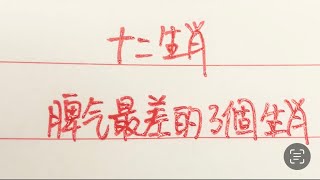 十二生肖
脾气最差的3個生肖